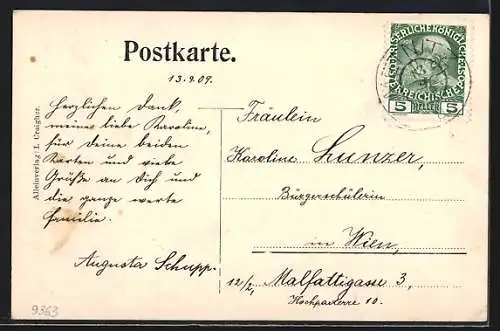 Postkarte.
13.9.09.
Herzlichen Dank,
meine liebe Karoline,
für deine beiden
Karten und viele
Grüße an Dich und
die ganze werte
Familie.
Augusta Schupp.
Alleinverlag: L. Craigher.
KAISERLICHE KÖNIGLICHE
ÖSTERREICHISCHE
5 HELLER 5
Fräulein
Karoline Lunzer,
Bürgerschülerin
in Wien,
12/2, Malfattigasse 3,
Hochparterre 10.
9363